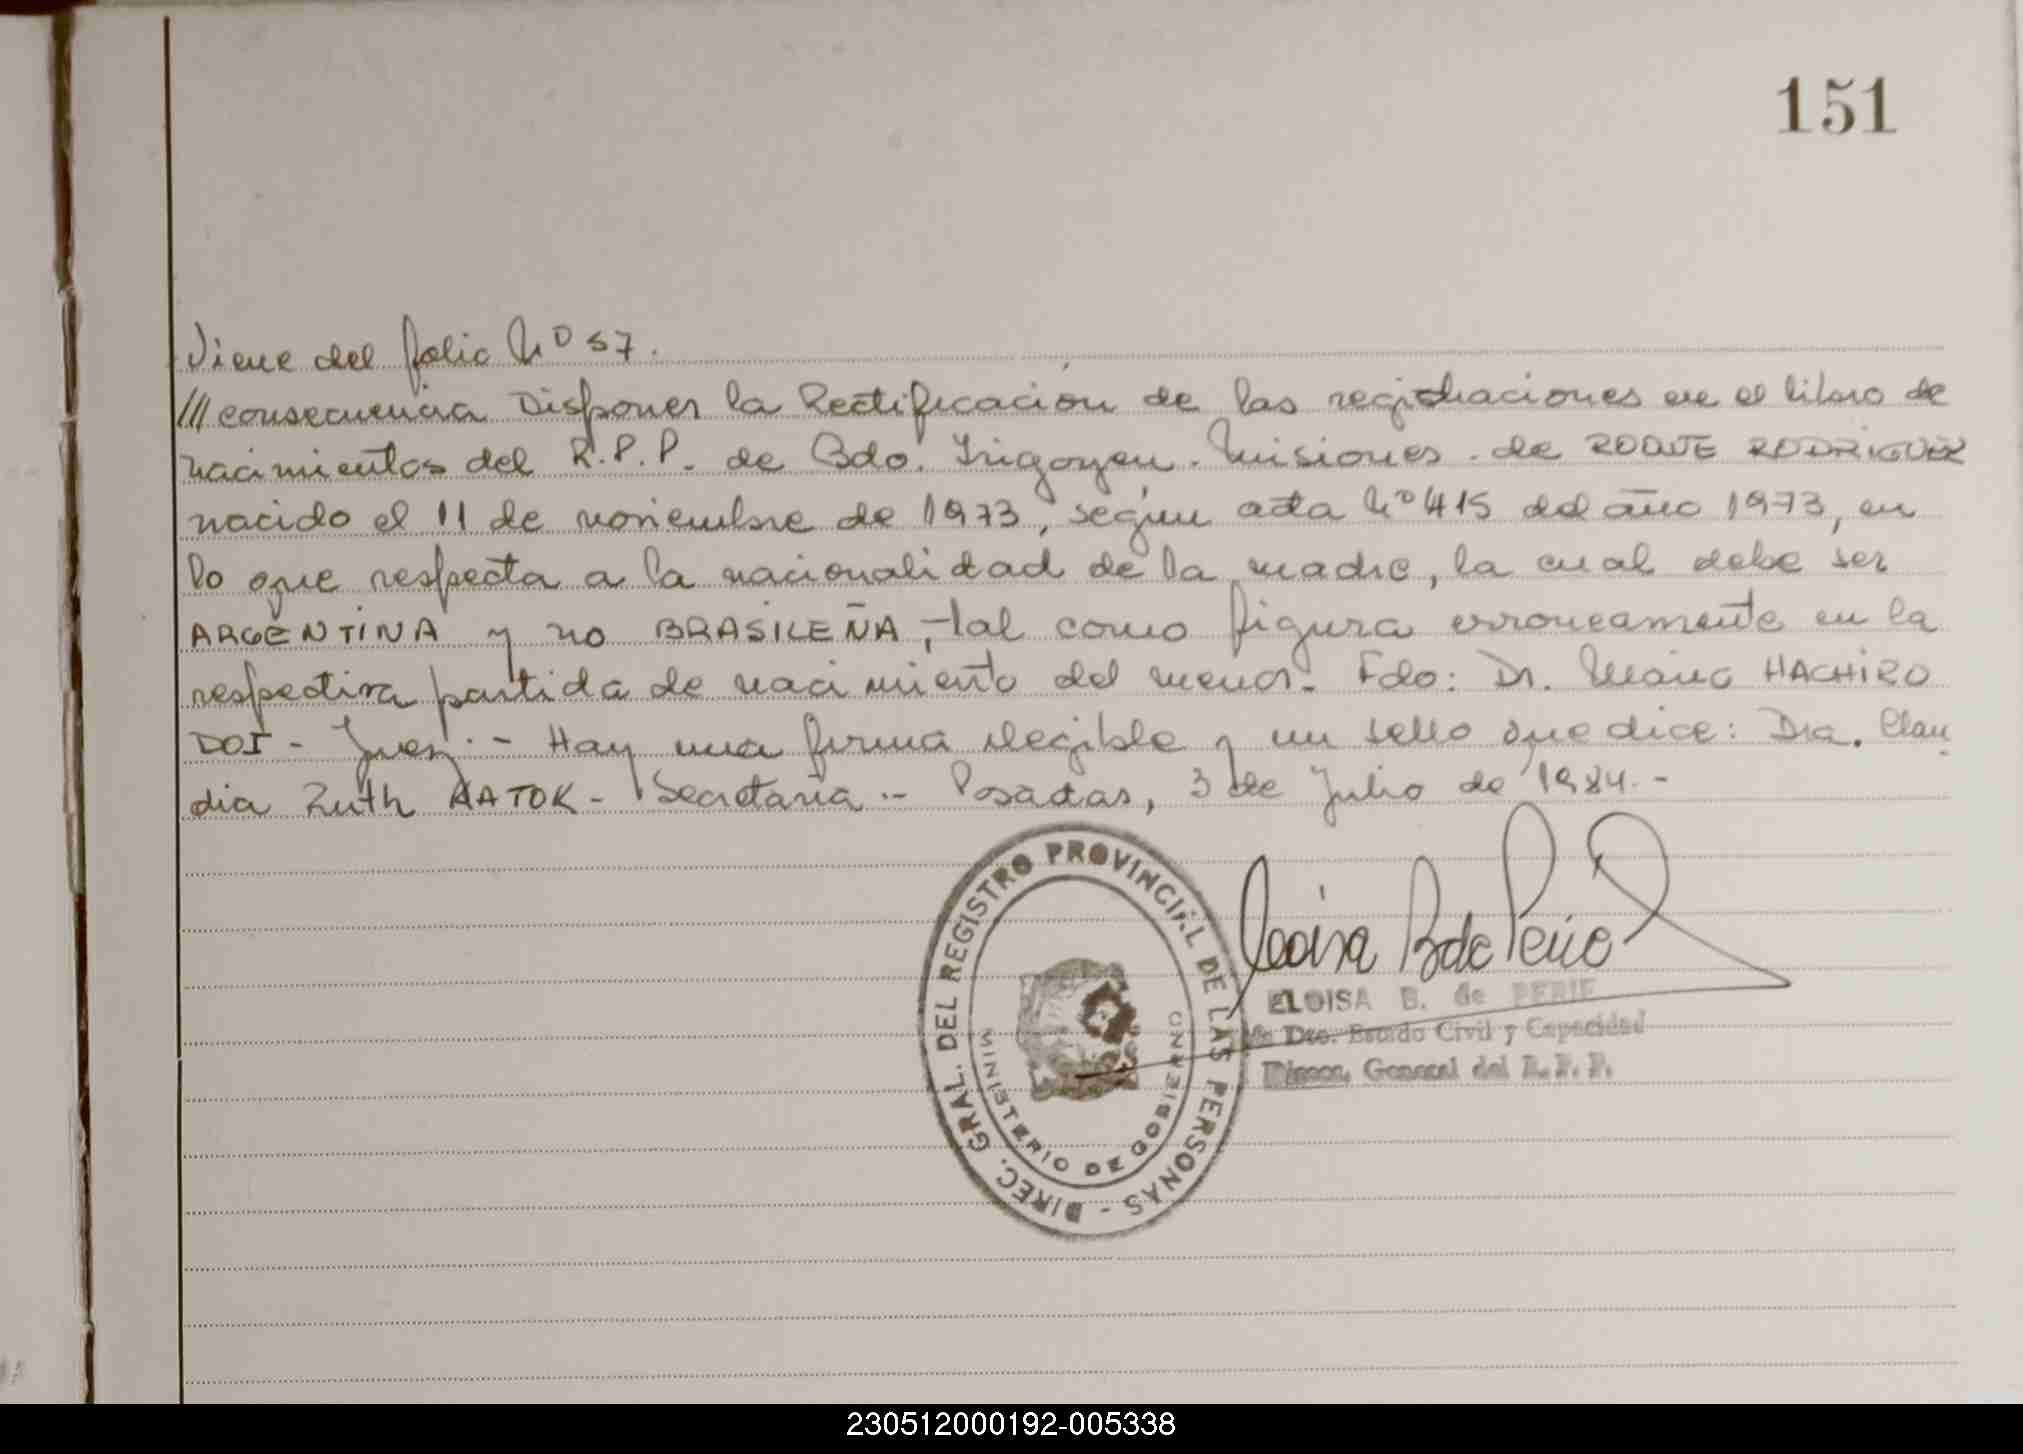 151
Viene del folio Nº 57.
/// consecuencia Disponer la Rectificación de las registraciones en el libro de
nacimientos del R.P.P. de Bdo. Irigoyen. Misiones. de ROQUE RODRIGUEZ
nacido el 11 de noviembre de 1973, según acta Nº 415 del año 1973, en
lo que respecta a la nacionalidad de la madre, la cual debe ser
ARGENTINA y no BRASILEÑA, tal como figura erroneamente en la
respectiva partida de nacimiento del menor. Fdo: Dr. Mario HACHIRO
DOI - Juez. - Hay una firma ilegible y un sello que dice: Dra. Clau
dia Ruth KATOK - Secretaria. - Posadas, 3 de Julio de 1984. -
DIREC. GRAL. DEL REGISTRO PROVINCIAL DE LAS PERSONAS -
MINISTERIO DE GOBIERNO
ELOISA B. de
Dto. Estado Civil y Capacidad
General del R.P.P.
230512000192-005338